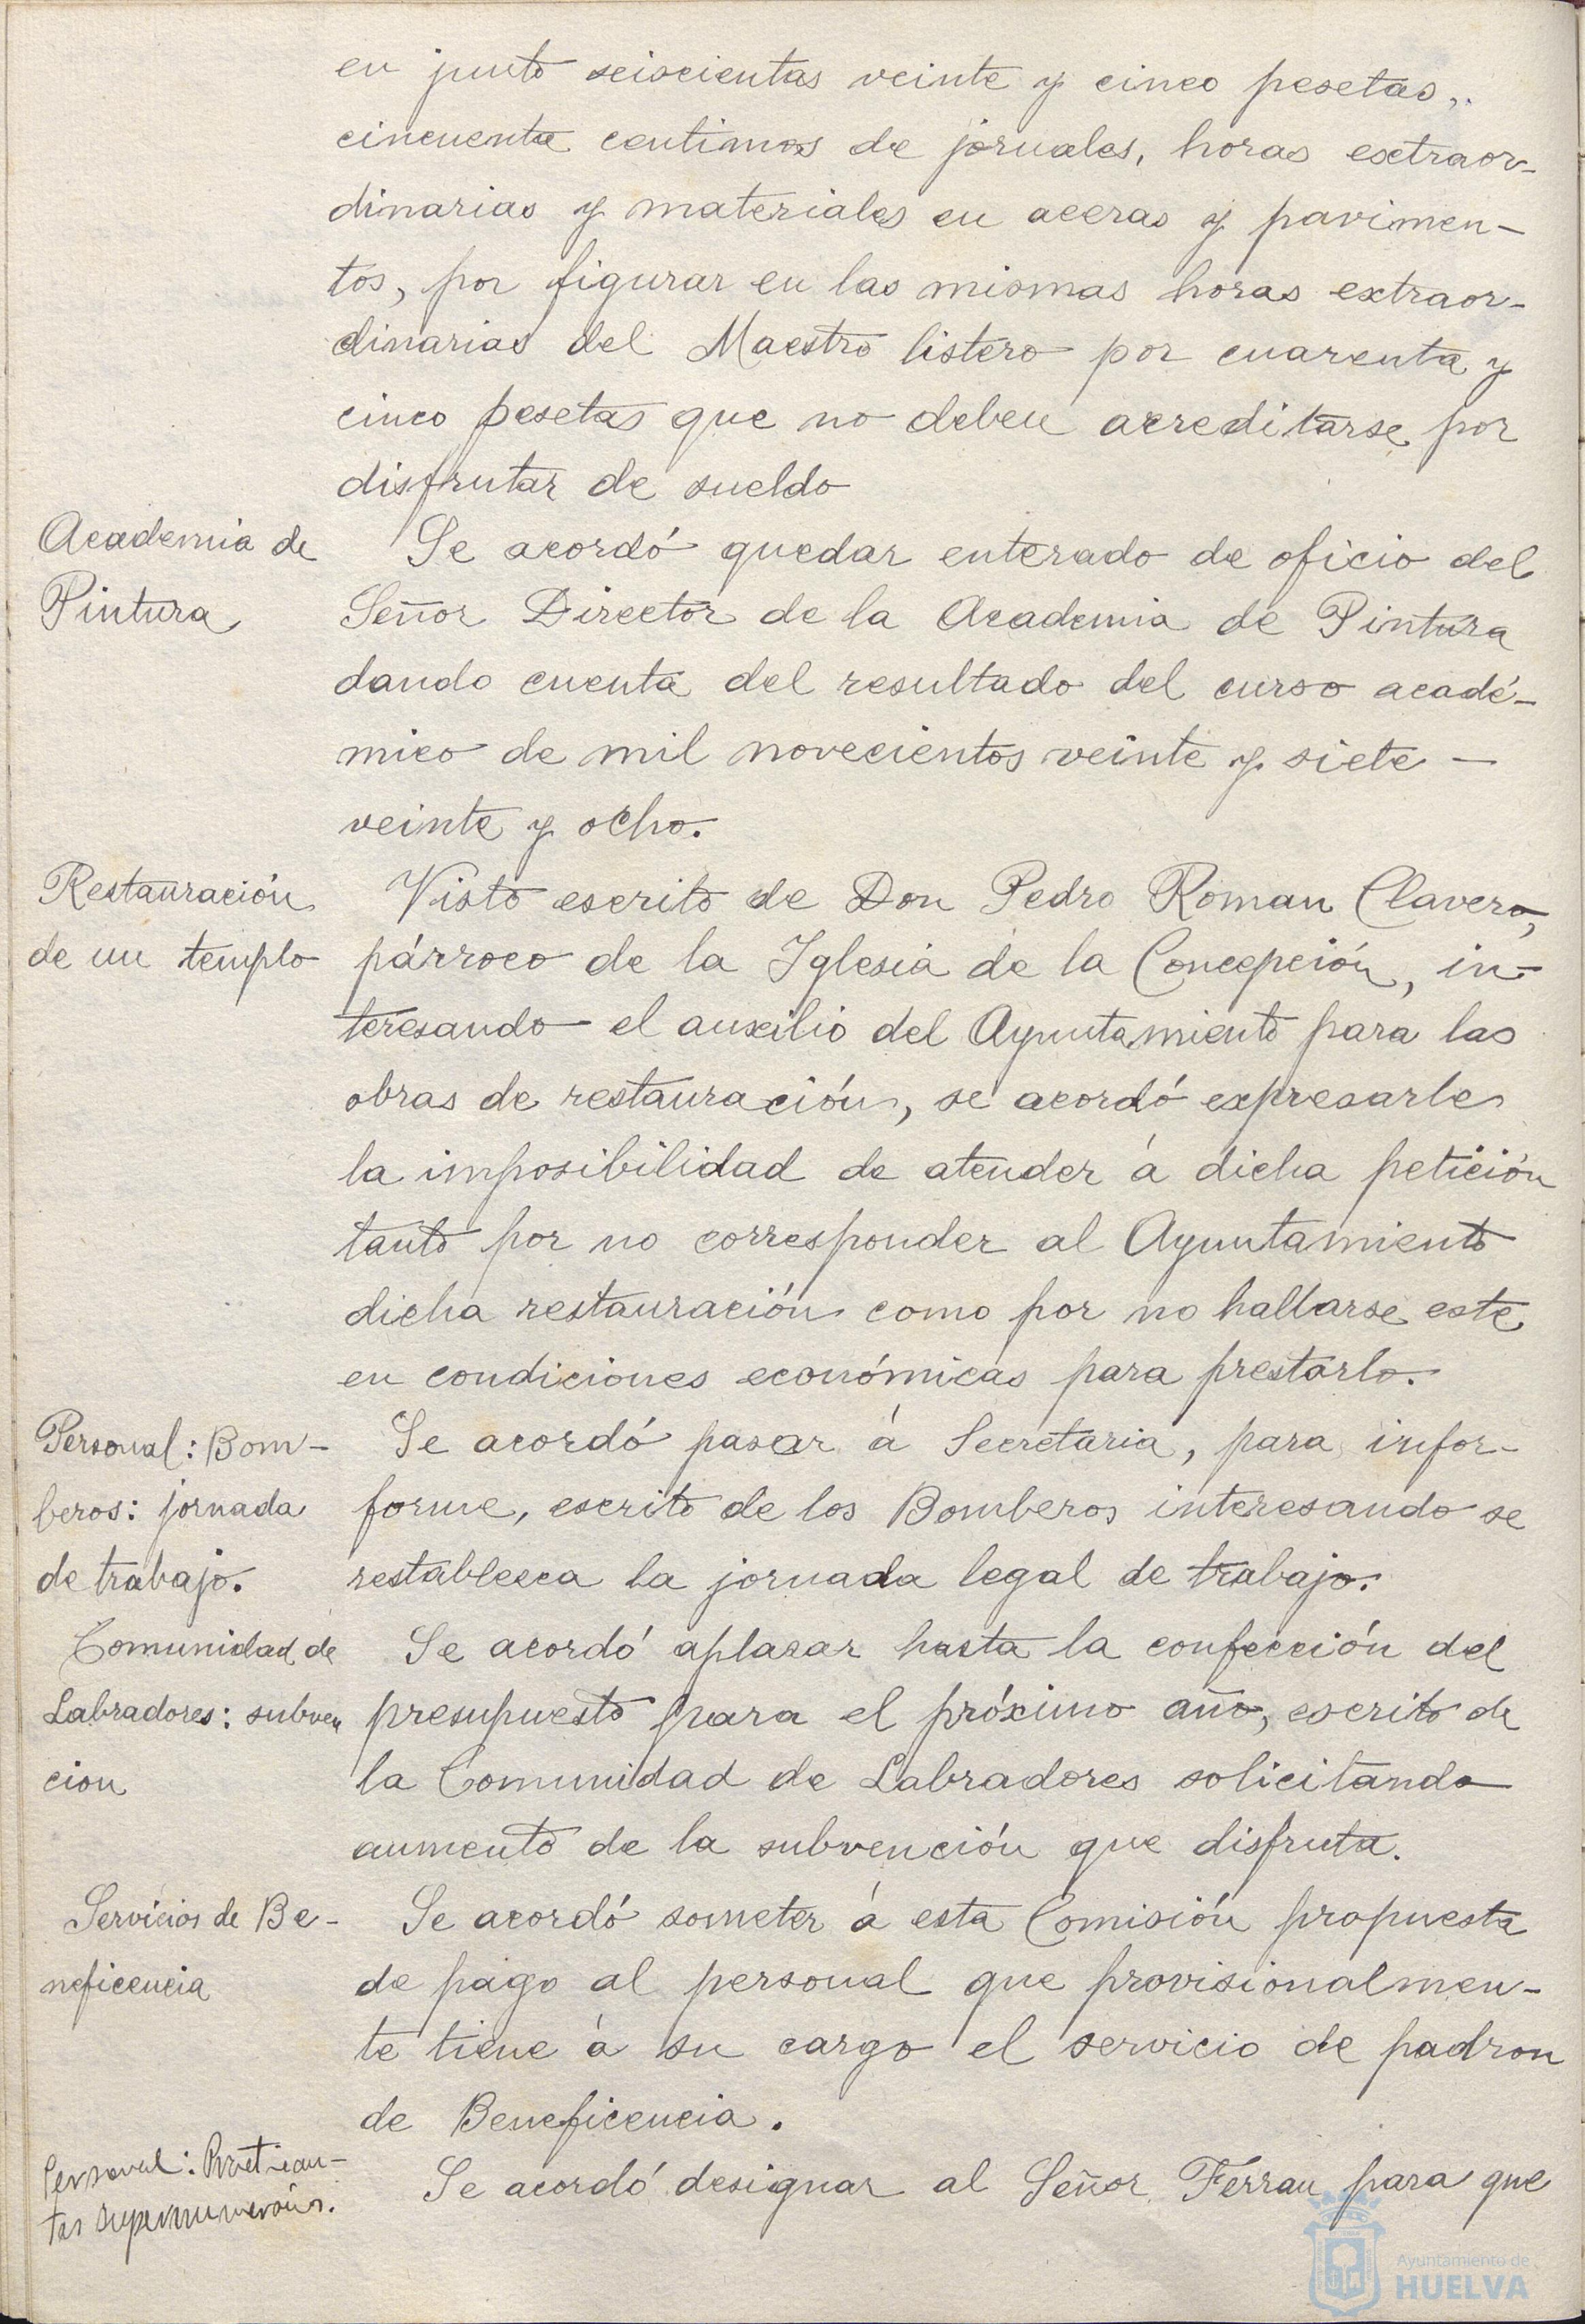 en junto seiscientas veinte y cinco pesetas,
cincuenta centimos de jornales, horas extraor-
dinarias y materiales en aceras y pavimen-
tos, por figurar en las mismas horas extraor-
dinarias del Maestro listero por cuarenta y
cinco pesetas que no deben acreditarse por
disfrutar de sueldo
Academia de
Pintura
Se acordó quedar enterado de oficio del
Señor Director de la Academia de Pintura
dando cuenta del resultado del curso acadé-
mico de mil novecientos veinte y siete -
veinte y ocho.
Restauración
de un templo
Visto escrito de Don Pedro Roman Clavero,
párroco de la Iglesia de la Concepción, in-
teresando el auxilio del Ayuntamiento para las
obras de restauración, se acordó expresarle
la imposibilidad de atender á dicha petición
tanto por no corresponder al Ayuntamiento
dicha restauración como por no hallarse este
en condiciones económicas para prestarlo.
Personal: Bom-
beros: jornada
de trabajo.
Se acordó pasar á Secretaria, para infor-
forme, escrito de los Bomberos interesando se
restablezca la jornada legal de trabajo.
Comunidad de
Labradores: subven
cion
Se acordó aplazar hasta la confección del
presupuesto para el próximo año, escrito de
la Comunidad de Labradores solicitando
aumento de la subvención que disfruta.
Servicios de Be-
neficencia
Se acordó someter á esta Comisión propuesta
de pago al personal que provisionalmen-
te tiene á su cargo el servicio de padron
de Beneficencia.
Personal: Practican-
tes supernumerarios.
Se acordó designar al Señor Ferrau para que
Ayuntamiento de
HUELVA